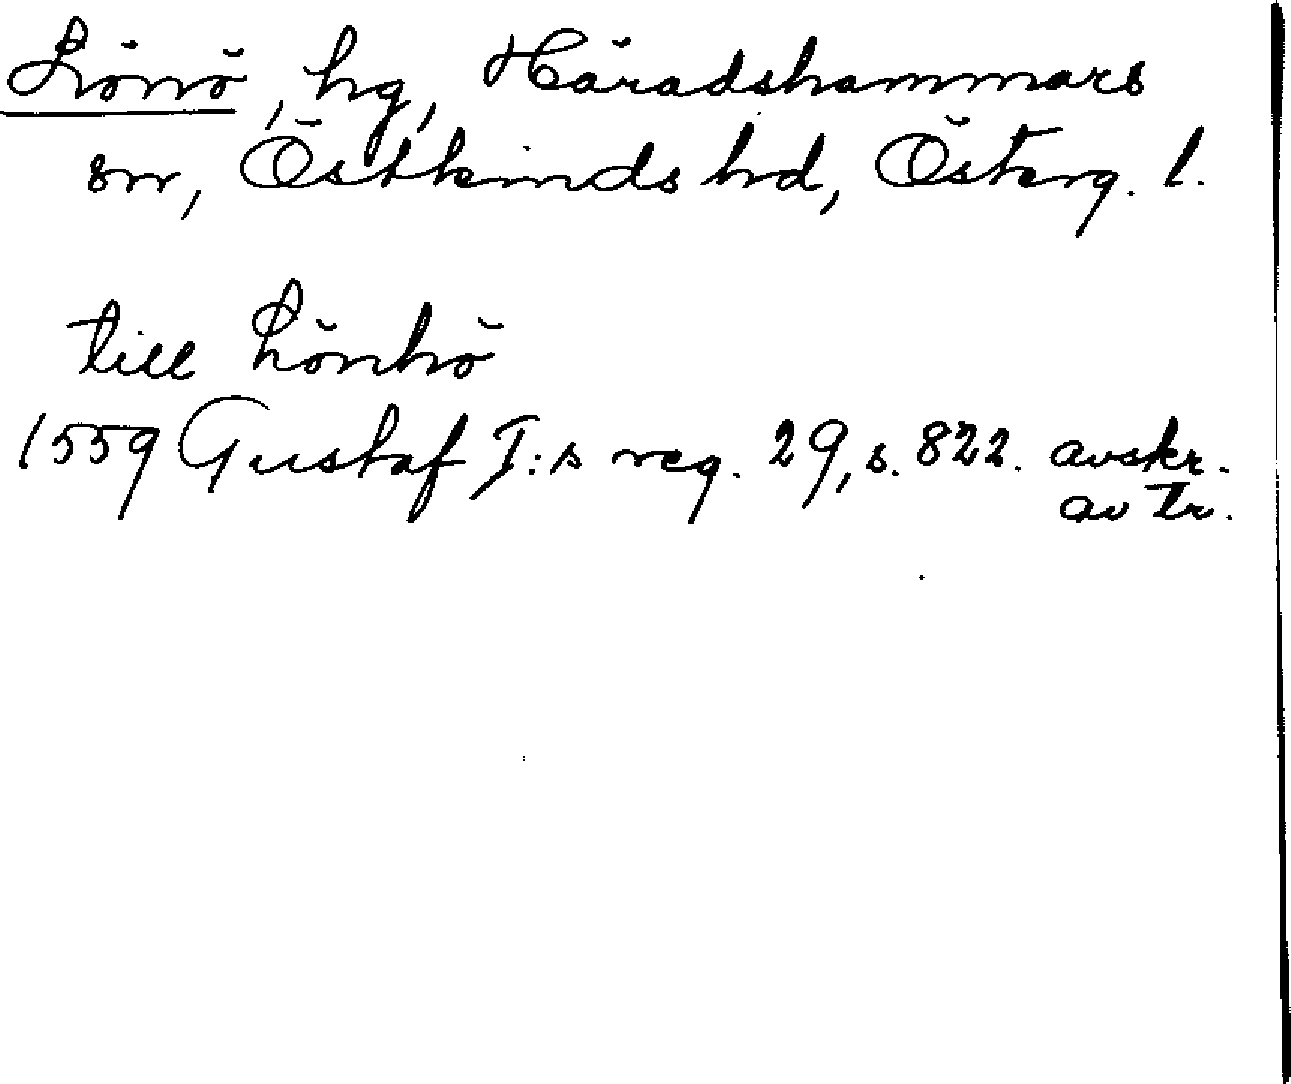 Lönö, hg, Häradshammars
sn, Östkinds hd, Österg. l.
till Lönhö
1559 Gustaf I:s reg. 29, s. 822. avskr.
av tr.